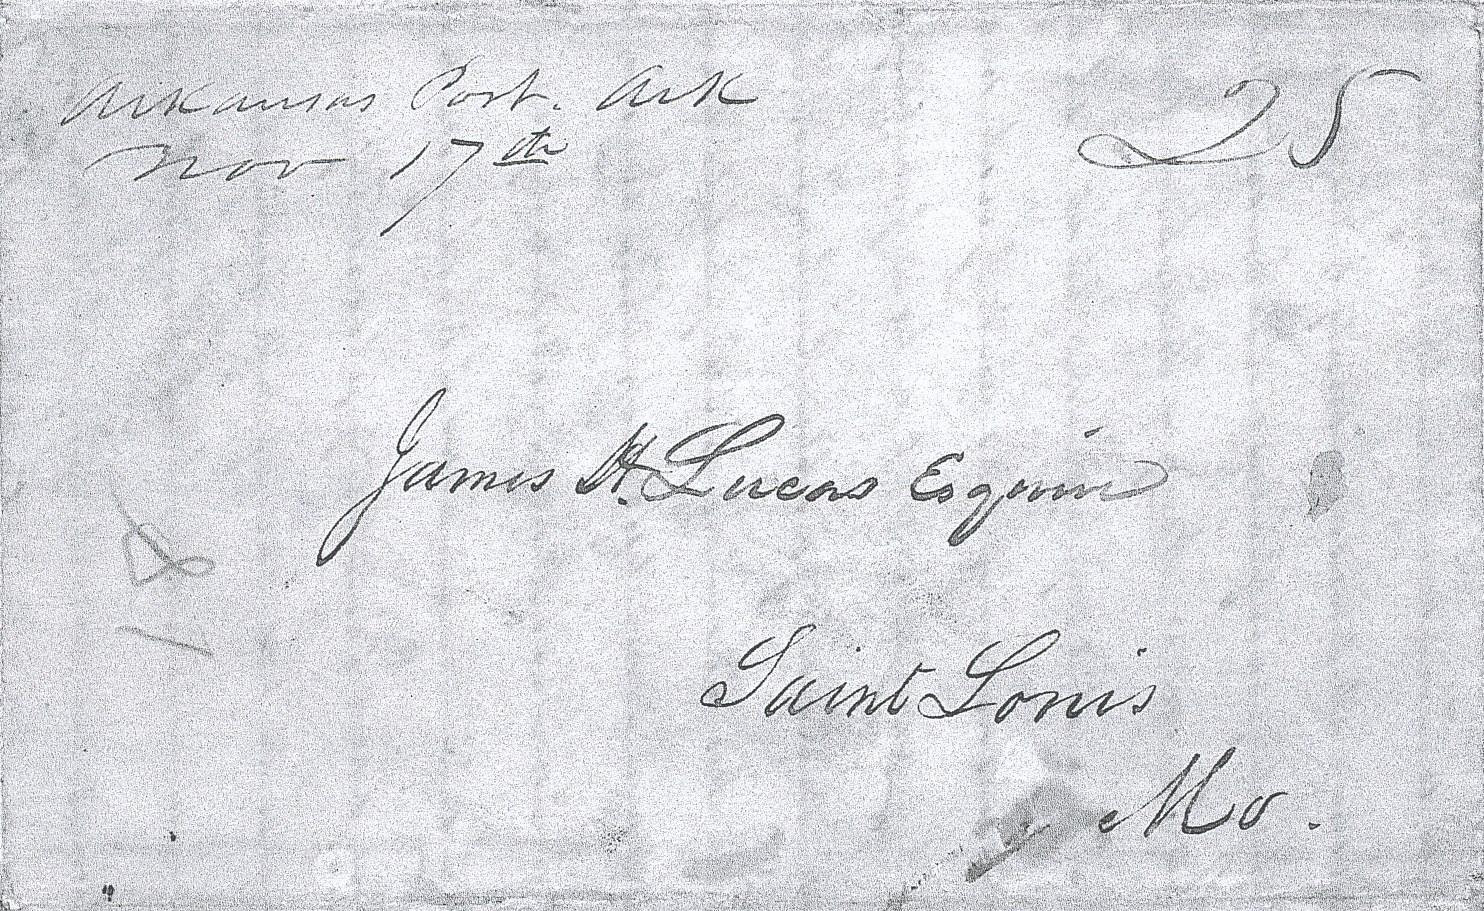 Arkansas Post. Ark
Nov 17th
25
James H. Lucas Esquire
Saint Louis
Mo.
18